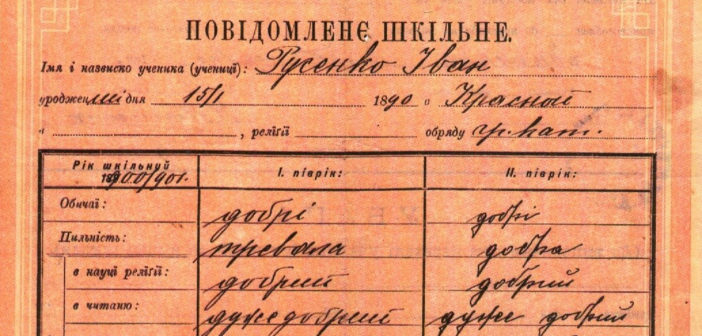 ПОВІДОМЛЕНЄ ШКІЛЬНЕ.
Імя і назвиско ученика (учениці): Русенко Іван
уроджений дня 15/I 1890 в Красной
в , релїґії обряду гр. кат.
Рік шкільний 1900/901. І. піврік: ІІ. піврік:
Обичаї: добрі добрі
Пильність: тревала добра
в науці релїґії: добрий добрий
в читаню: дуже добрий дуже добрий